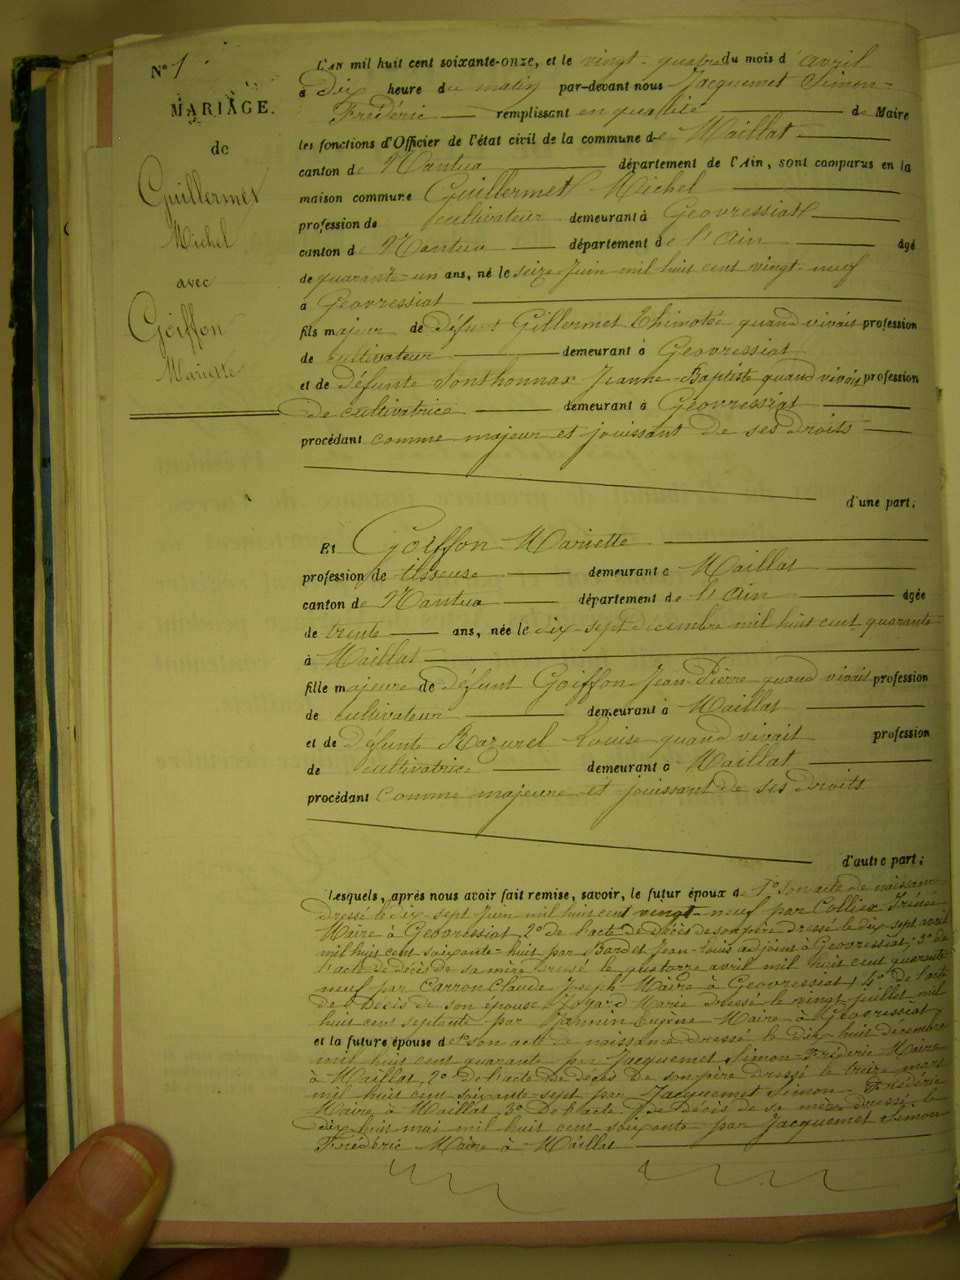 N° 1
MARIAGE.
de
Guillermet
Michel
avec
Goiffon
Mariette
L'an mil huit cent soixante-onze, et le vingt-quatre du mois d'avril
à Dix heure du matin par-devant nous Jacquemet Simon-
Frédéric remplissant en qualité de Maire
les fonctions d'Officier de l'état civil de la commune de Maillat
canton de Nantua département de l'Ain, sont comparus en la
maison commune Guillermet Michel
profession de cultivateur demeurant à Geovressiat
canton de Nantua département de l'Ain âgé
de quarante-un ans, né le seize Juin mil huit cent vingt-neuf
à Geovressiat
fils majeur de Défunt Gillermet Thimotée quand vivais profession
de cultivateur demeurant à Geovressiat
et de Défunte Sonthonnax Jeanne-Baptiste quand vivais profession
de cultivatrice demeurant à Geovressiat
procédant comme majeur et jouissant de ses Droits
d'une part;
Et Goiffon Mariette
profession de tisseuse demeurant à Maillat
canton de Nantua département de l'Ain âgée
de trente ans, née le dix-sept décembre mil huit cent quarante-
à Maillat
fille majeure de Défunt Goiffon Jean-Pierre quand vivais profession
de cultivateur demeurant à Maillat
et de Défunte Mazurel Louise quand vivait profession
de cultivatrice demeurant à Maillat
procédant comme majeure et jouissant de ses Droits
d'autre part;
Lesquels, après nous avoir fait remise, savoir, le futur époux de 1° Son acte de naissance
dressé le dix-sept Juin mil huit cent vingt-neuf par
Maire à Geovressiat, 2° de l'acte de Décès de son père dressé le dix sept avril
mil huit cent soixante-huit par Bardet Jean-Louis adjoint à Geovressiat, 3° de
l'acte de décès de sa mère dressé le quatorze avril mil huit cent quarante
neuf par Carron Claude Joseph Maire à Geovressiat, 4° de l'acte
de Décès de son épouse Marie dressé le vingt juillet mil
huit cent septante par Eugène Maire à Géovressiat
et la future épouse de 1° son acte de naissance dressé le Dix huit décembre
mil huit cent quarante par Jacquemet Simon-Frédéric Maire
à Maillat, 2° de l'acte de décès de son père dressé le treize mars
mil huit cent soixante-sept par Jacquemet Simon-Frédéric
Maire à Maillat, 3° De l'acte de Décès de sa mère dressé le
dix huit mai mil huit cent soixante par Jacquemet Simon
Frédéric Maire à Maillat